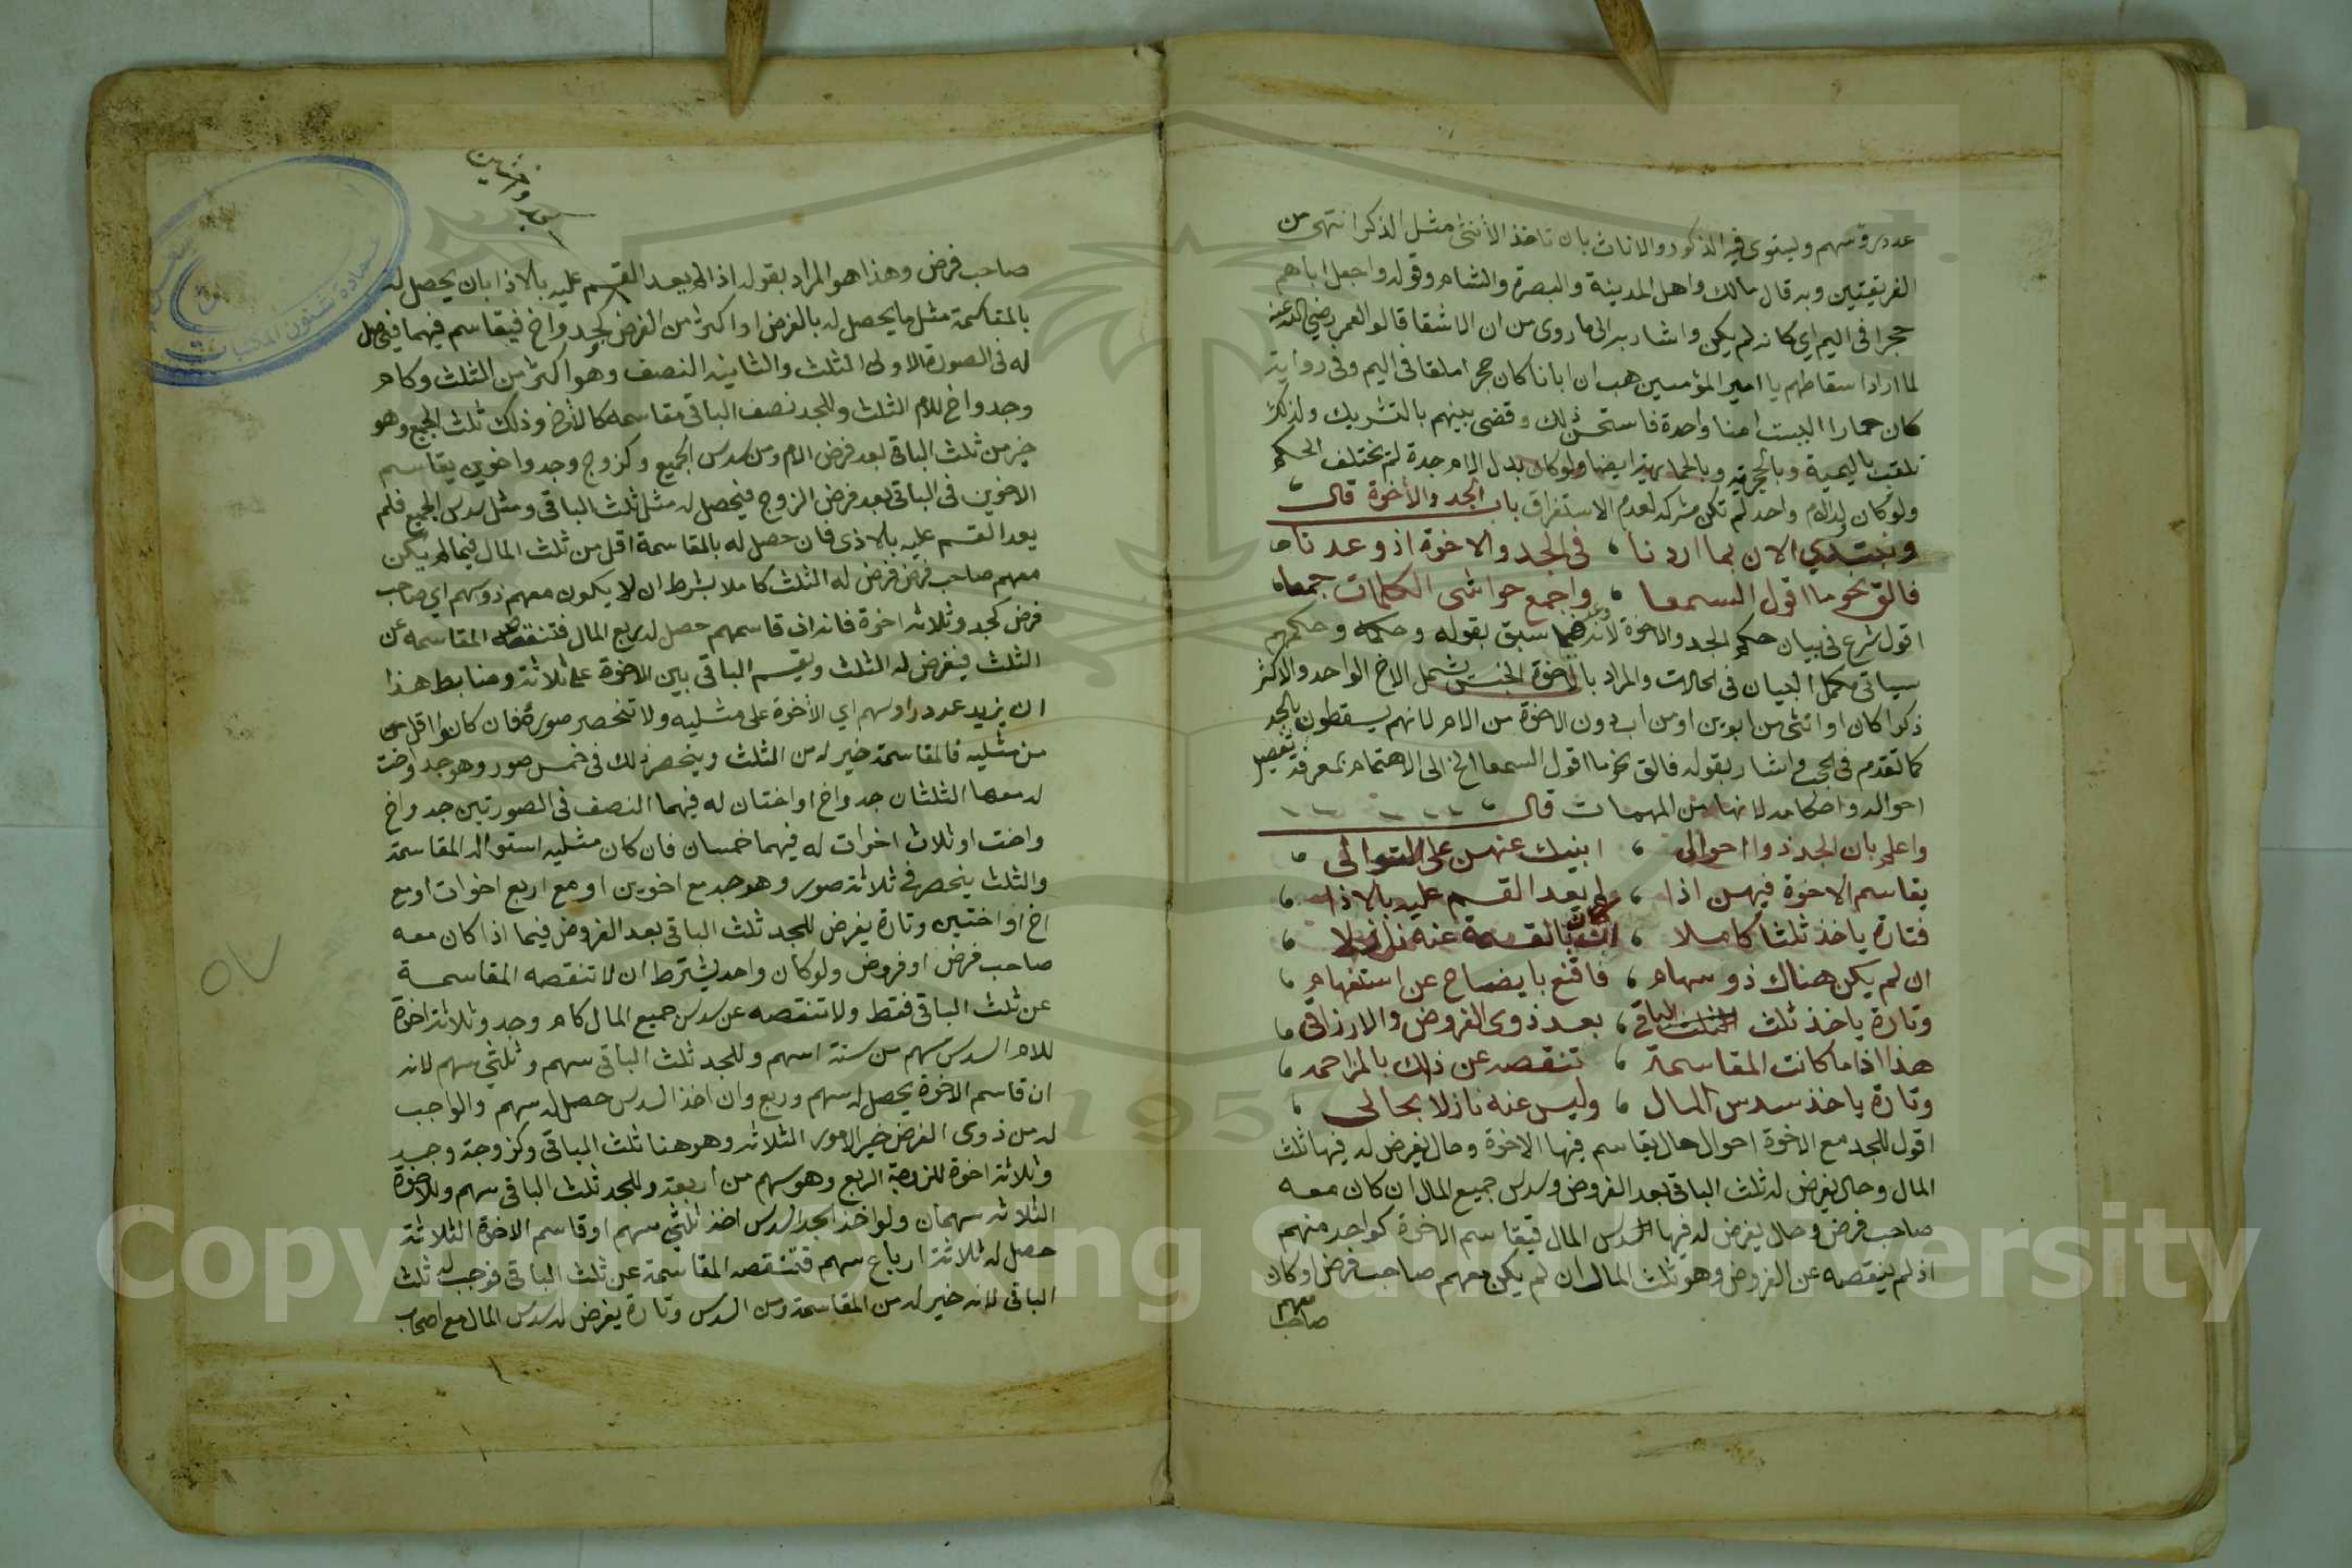 عدد رؤسهم ويستوى فيه الذكور والاناث بان تاخذ الأنثى مثل الذكر انتهى من
الفريقين وبه قال مالك واهل المدينة والبصرة والشام وقوله واجعل اباهم
حجرا فى اليم اي كانه لم يكن واشار به الى ما روى من ان الاشقا قالوا لعمر رضي الله عنه
لما اراد اسقاطهم يا امير المؤمنين هب ان ابانا كان حجرا ملقا فى اليم وفى رواية
كان حمارا اليست امنا واحدة فاستحسن ذلك وقضى بينهم بالتشريك ولذلك
تلقب باليمية وبالحجرية وبالحمارية ايضا ولو كان بدل الام جدة لم يختلف الحكم
ولو كان ولد الام واحد لم تكن مشركة لعدم الاستغراق باب الجد والأخوة قال
ونبتدي الان بما اردنا ، فى الجد والاخوة اذ وعدنا
فالق نحو ما اقول السمعا ، واجمع حواشى الكلمات جمعا
اقول شرع فى بيان حكم الجد والاخوة لانه وعد فيما سبق بقوله وحكمه وحكمهم
سياتى مكمل البيان فى الحالات والمراد بالاخوة الجنس يشمل الاخ الواحد والاكثر
ذكرا كان او انثى من ابوين او من اب دون الاخوة من الام لانهم يسقطون بالجد
كما تقدم فى الحجب واشار بقوله فالق نحو ما اقول السمعا الخ الى الاهتمام بمعرفة تفصيل
احواله واحكامه لانها من المهمات قال
واعلم بان الجد ذوا احوالى ، انبيك عنهن على التوالى
يقاسم الاخوة فيهن اذا ، ولم يعد القسم عليه بالاذا
فتارة ياخذ ثلثا كاملا ، ان كان بالقسمة عنه نازلا
ان لم يكن هناك ذو سهام ، فاقنع بايضاح عن استفهام
وتارة ياخذ ثلث الباقى ، بعد ذوى الفروض والارزاقى
هذا اذا ما كانت المقاسمة ، تنقصه عن ذاك بالمزاحمه
وتارة ياخذ سدس المال ، وليس عنه نازلا بحالى
اقول للجد مع الاخوة احوال حال يقاسم فيها الاخوة وحال يفرض له فيها ثلث
المال وحال يفرض له ثلث الباقى بعد الفروض وسدس جميع المال ان كان معه
صاحب فرض وحال يفرض له فيها سدس المال فيقاسم الاخوة كواحد منهم
اذ لم ينقصه عن الفروض وهو ثلث المال ان لم يكن معهم صاحب فرض او كان
معهم
صاحب
صاحب فرض وهذا هو المراد بقوله اذا لم يعد القسم عليه بالاذا بان يحصل له
بالمقاسمة مثل ما يحصل له بالفرض او اكثر من الفرض كجد واخ فيقاسم فيهما فيحصل
له فى الصورة الاولى الثلث والثانيه النصف وهو اكثر من الثلث وكام
وجد واخ للام الثلث وللجد نصف الباقى مقاسمه كالأخ وذلك ثلث الجميع وهو
خير من ثلث الباقى بعد فرض الام ومن سدس الجميع وكزوج وجد واخوين يقاسم
الاخوين فى الباقى بعد فرض الزوج فيحصل له مثل ثلث الباقى ومثل سدس الجميع فلم
يعد القسم عليه بالاذى فان حصل له بالمقاسمة اقل من ثلث المال فيما لم يكن
معهم صاحب فرض فرض له الثلث كاملا بشرط ان لا يكون معهم ذو سهم اي صاحب
فرض كجد وثلاثه اخوة فانه ان قاسمهم حصل له ربع المال فتنقصه المقاسمه عن
الثلث فيفرض له الثلث ويقسم الباقى بين الاخوة على ثلاثة وضابط هذا
ان يزيد عدد راوسهم اي الأخوة على مثليه ولا تنحصر صوره فان كانوا اقل من
من مثليه فالمقاسمة خير له من الثلث وينحصر ذلك فى خمس صور وهو جد واخت
له معها الثلثان جد واخ او اختان له فيهما النصف فى الصورتين جد واخ
واخت او ثلاث اخوات له فيهما خمسان فان كان مثليه استوا له المقاسمة
والثلث ينحصر في ثلاثة صور وهو جد مع اخوين او مع اربع اخوات او مع
اخ او اختين وتارة يفرض للجد ثلث الباقى بعد الفروض فيما اذا كان معه
صاحب فرض او فروض ولو كان واحد يشترط ان لا تنقصه المقاسمة
عن ثلث الباقى فقط ولا تنقصه عن سدس جميع المال كام وجد وثلاثة اخوة
للام السدس سهم من ستة اسهم وللجد ثلث الباقى سهم وثلثي سهم لانه
ان قاسم الاخوة يحصل له سهم وربع وان اخذ السدس حصل له سهم والواجب
له من ذوى الفرض خير الامور الثلاثه وهو هنا ثلث الباقى وكزوجة وجد
وثلاثة اخوة للزوجة الربع وهو سهم من اربعة وللجد ثلث الباقى سهم وللاخوة
الثلاثه سهمان ولو اخذ الجد السدس اخذ ثلثي سهم او قاسم الاخوة الثلاثة
حصل له ثلاثة ارباع سهم فتنقصه المقاسمة عن ثلث الباقى فوجب له ثلث
الباقى لانه خير له من المقاسمة ومن السدس وتارة يفرض له سدس المال مع اصحاب
٥٧
عمادة شئون المكتبات
1957
Copyright © King Saud University